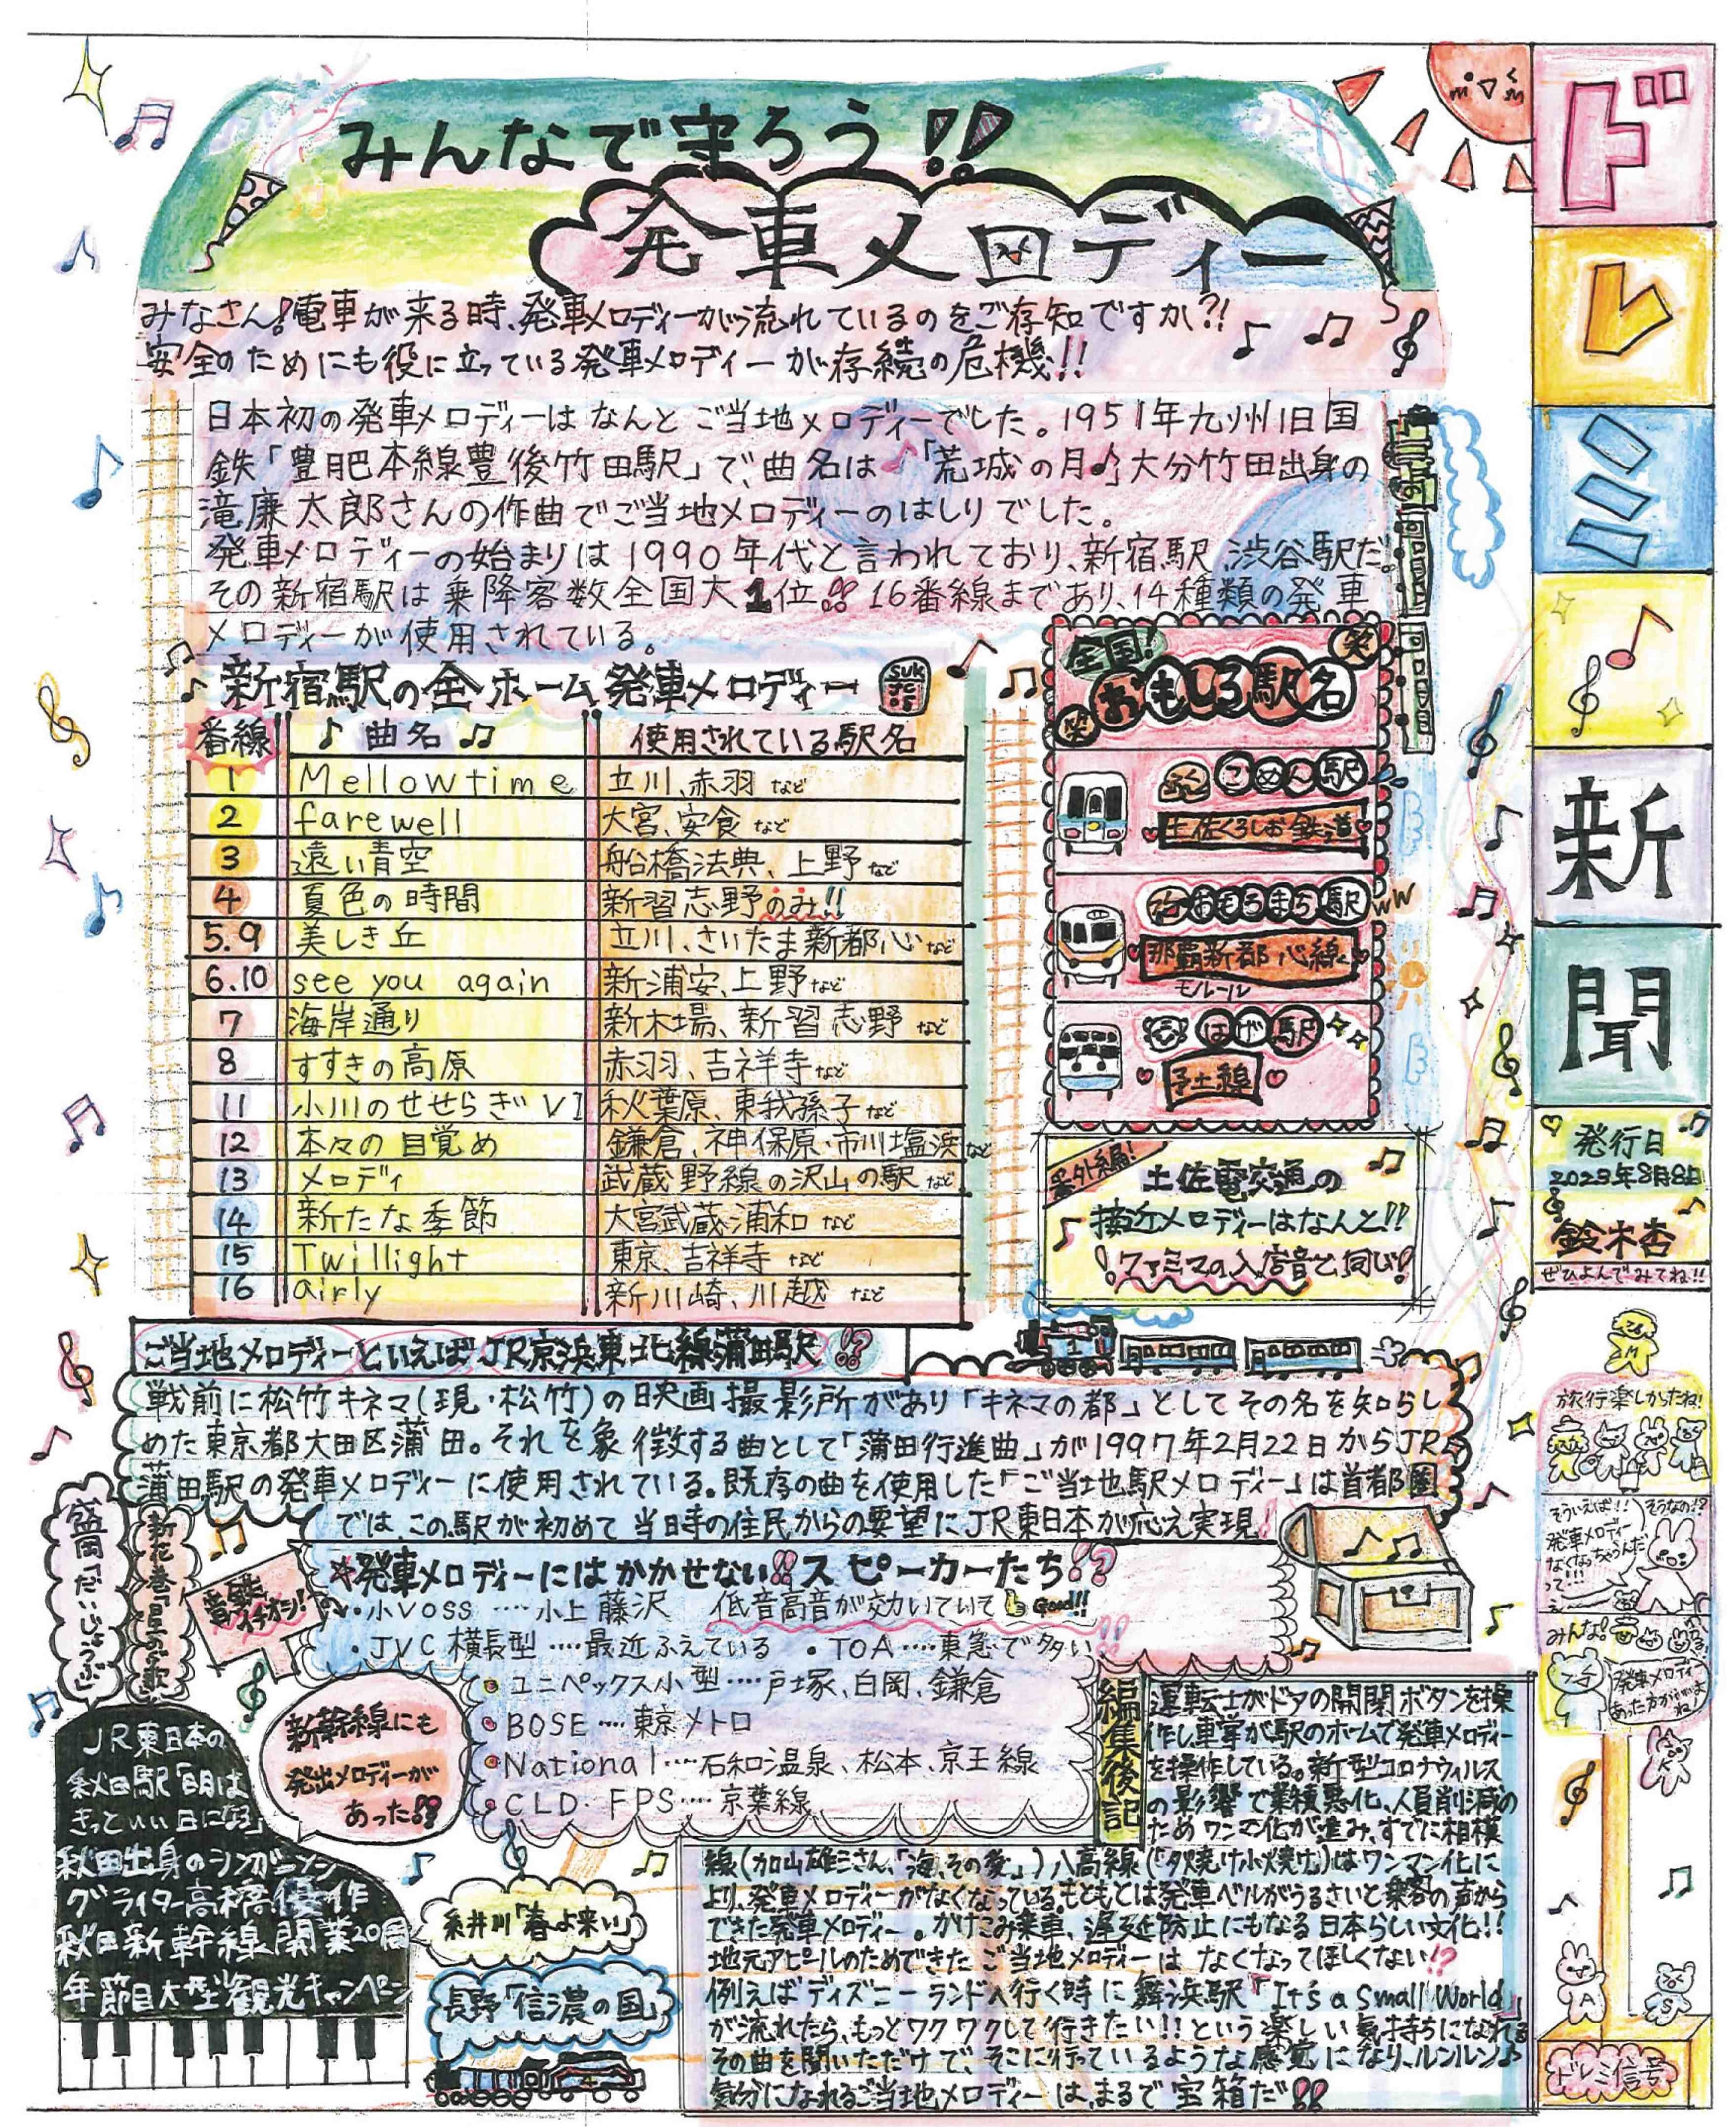 ドレミ♪新聞
発行日
2023年8月8日
鈴木杏
ぜひよんでみてね!!
みんなで守ろう!!
発車メロディー
みなさん!電車が来る時、発車メロディーが流れているのをご存知ですか?!
安全のためにも役に立っている発車メロディーが存続の危機!!
日本初の発車メロディーはなんとご当地メロディーでした。1951年九州旧国
鉄「豊肥本線豊後竹田駅」で、曲名は♪「荒城の月♪」大分竹田出身の
滝廉太郎さんの作曲でご当地メロディーのはしりでした。
発車メロディーの始まりは1990年代と言われており、新宿駅、渋谷駅だ。
その新宿駅は乗降客数全国大1位!!16番線まであり、14種類の発車
メロディーが使用されている。
新宿駅の全ホーム発車メロディー
番線 ♪曲名♫ 使用されている駅名
1 Mellowtime 立川、赤羽など
2 farewell 大宮、安食など
3 遠い青空 船橋法典、上野など
4 夏色の時間 新習志野のみ!!
5.9 美しき丘 立川、さいたま新都心など
6.10 see you again 新浦安、上野など
7 海岸通り 新木場、新習志野など
8 すすきの高原 赤羽、吉祥寺など
11 小川のせせらぎVI 秋葉原、東我孫子など
12 本々の目覚め 鎌倉、神保原、市川塩浜など
13 メロディ 武蔵野線の沢山の駅など
14 新たな季節 大宮武蔵浦和など
15 Twillight 東京、吉祥寺など
16 airly 新川崎、川越など
全国!
笑おもしろ駅名笑
ごめん駅
土佐くろしお鉄道
おもろまち駅
那覇新都心線
モルール
はげ駅
予土線
番外編!
土佐電交通の
接近メロディーはなんと!!
ファミマの入店音と同じ!
ご当地メロディーといえばJR京浜東北線蒲田駅!?
戦前に松竹キネマ(現・松竹)の映画撮影所があり「キネマの都」としてその名を知らし
めた東京都大田区蒲田。それを象徴する曲として「蒲田行進曲」が1997年2月22日からJR
蒲田駅の発車メロディーに使用されている。既存の曲を使用した「ご当地駅メロディー」は首都圏
では、この駅が初めて当時の住民からの要望にJR東日本が応え実現!
発車メロディーにはかかせない!!スピーカーたち!?
音質イチオシ!
・小VOSS ‥‥小上藤沢 低音高音が効いていて Good!!
・JVC横長型‥‥最近ふえている ・TOA‥‥東急で多い!!
・ユニペックス小型‥‥戸塚、白岡、鎌倉
・BOSE‥‥東京メトロ
・National‥‥石和温泉、松本、京王線
・CLD・FPS‥‥京葉線
盛岡「だいじょうぶ」
新花巻「星めぐりの歌」
新幹線にも
発出メロディーが
あった!!
JR東日本の
秋田駅「明日は
きっといい日になる」
秋田出身のシンガーソン
グライター高橋優作
秋田新幹線開業20周
年節目大型観光キャンペーン
糸井川「春よ来い」
長野「信濃の国」
編集後記
運転士がドアの開閉ボタンを操
作し車掌が駅のホームで発車メロディー
を操作している。新型コロナウィルス
の影響で業積悪化、人員削減の
ためワンマン化が進み、すでに相模
線(加山雄三さん、「海、その愛」)八高線(「夕焼け小焼け」)はワンマン化に
より、発車メロディーがなくなっている。もともとは発車ベルがうるさいと乗客の声から
できた発車メロディー。かけこみ乗車、遅延防止にもなる日本らしい文化!!
地元アピールのためできたご当地メロディーはなくなってほしくない!?
例えばディズニーランドへ行く時に舞浜駅「It's a Small World」
が流れたら、もっとワクワクして行きたい!!という楽しい気持ちになれる
その曲を聞いただけで、そこに行っているような感覚になり、ルンルン♪
気分になれるご当地メロディーは、まるで宝箱だ!!
旅行楽しかったね!
そういえば!!
発車メロディー
なくなっちゃうんだ
って…
そうなの!?
みんな!
発車メロディー
あった方がいいよ
ね!
ドレミ信号